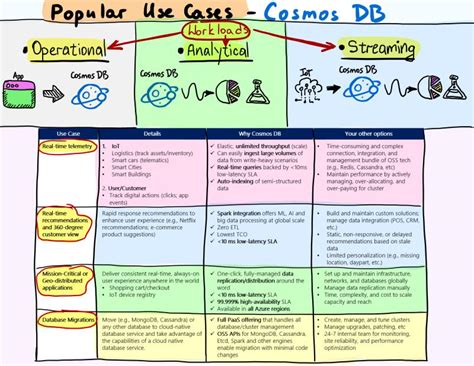 Popular Use Cases - Cosmos DB
Workloads
• Operational
• Analytical
• Streaming
App
Cosmos DB
Cosmos DB
IoT
Cosmos DB
Use Case
Details
Why Cosmos DB
Your other options
Real-time telemetry
1. IoT
• Logistics (track assets/inventory)
• Smart cars (telematics)
• Smart Cities
• Smart Buildings
2. User/Customer
• Track digital actions (clicks; app
events)
✓ Elastic, unlimited throughput (scale)
✓ Can easily ingest large volumes of
data from write-heavy scenarios
✓ Real-time queries backed by <10ms
low-latency SLA
✓ Auto-indexing of semi-structured
data
- Time-consuming and complex
connection, integration, and
management bundle of OSS tech
(e.g., Redis, Cassandra, etc)
- Managing cost by actively
managing, over-allocating, and
over-paying for cluster
Real-time
recommendations
and 360-degree
customer view
Rapid response recommendations to
enhance user experience (e.g., Netflix
recommendations; e-commerce
product suggestions)
✓ Spark integration offers ML, AI and
big data processing at global scale
✓ Zero ETL
✓ Lowest TCO
✓ <10 ms low-latency SLA
- Build and maintain custom solutions;
manage data integration (POS, CRM,
etc.)
- Static, non-responsive, or delayed
recommendations based on stale
data
- Limited personalization (e.g., missing
location, daypart, etc.)
Mission-Critical or
Geo-distributed
applications
Deliver consistent real-time, always-on
user experience anywhere in the world
• Shopping cart/checkout
• IoT device registry
✓ One-click, fully-managed data
replication/distribution around the
world
✓ <10 ms low-latency SLA
✓ 99.999% high-availability SLA
✓ Available in all Azure regions
- Set up and maintain infrastructure,
networks, and databases globally
- Manually maintain and update data
consistency
- Invest significant time and capital to
scale and support each region
Database Migrations
Move (e.g., MongoDB, Cassandra) or
any other database to cloud-native
database service and take advantage of
the capabilities of a cloud native
database service.
✓ Full PaaS offering that handles all
database/cluster management
✓ OSS APIs for MongoDB, Cassandra,
Etcd, Spark and other engines
migration
- Create, manage, and tune clusters
- Manage upgrades, patching, etc
- 24-7 internal team for monitoring,
site reliability, and performance